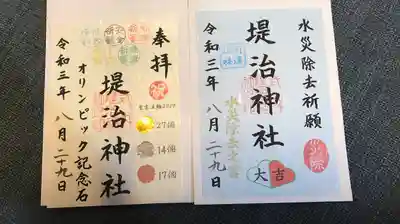 水災除去祈願
堤治神社
令和三年八月二十九日
大吉
奉拝
堤治神社
27個
14個
17個
オリンピック記念石
令和三年八月二十九日